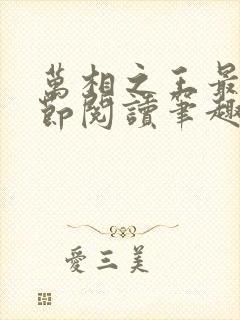 萬相之王最
節閱讀筆趣
愛三美